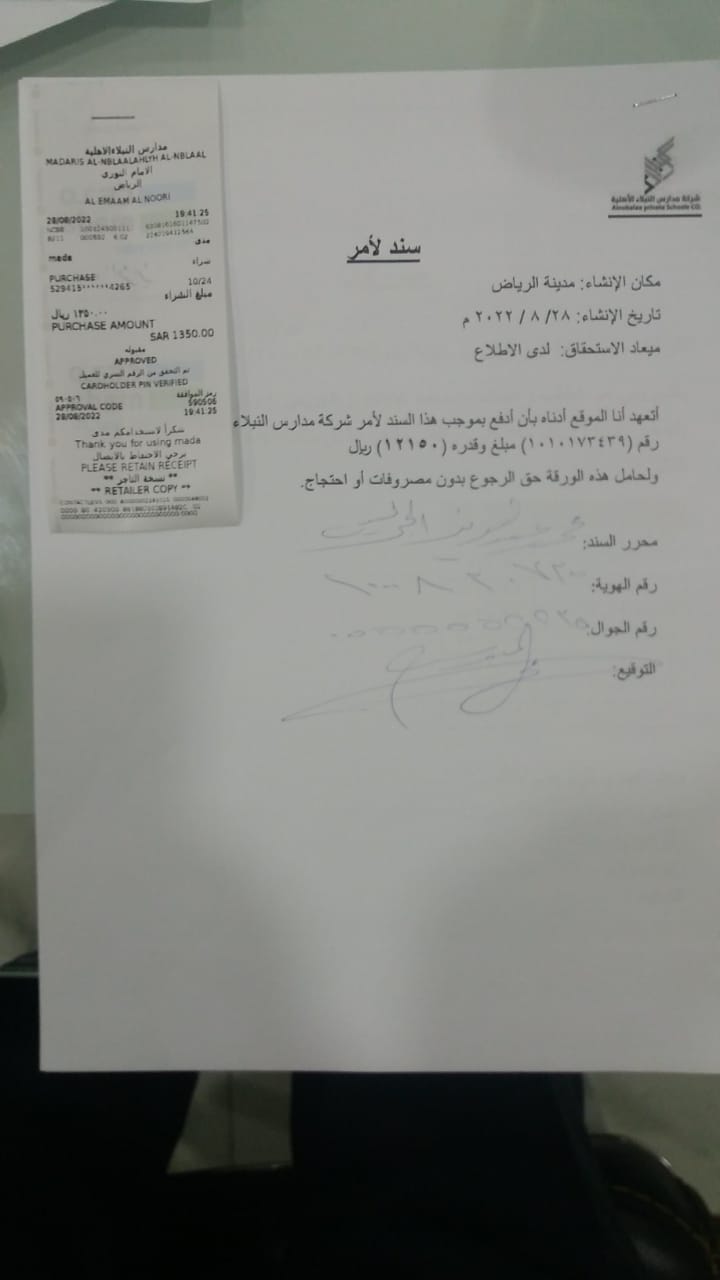 مدارس النبلاءالاهلية
MADARIS AL-NBLAALAHLYH AL-NBLAAL
الامام النوري
الرياض
AL EMAAM AL NOORI
28/08/2022 19:41:25
مدى
mada
شراء
PURCHASE 10/24
529415******4265
مبلغ الشراء
١٣٥٠.٠٠ ريال
PURCHASE AMOUNT
SAR 1350.00
مقبوله
APPROVED
تم التحقق من الرقم السري للعميل
CARDHOLDER PIN VERIFIED
رمز الموافقة ٥٩٠٥٠٦
APPROVAL CODE 590506
28/08/2022 19:41:25
شكرا لاستخدامكم مدى
Thank you for using mada
يرجى الاحتفاظ بالايصال
PLEASE RETAIN RECEIPT
** نسخة التاجر **
** RETAILER COPY **
شركة مدارس النبلاء الأهلية
Alnobalaa private Schools CO.
سند لأمر
مكان الإنشاء: مدينة الرياض
تاريخ الإنشاء: ٢٨/ ٨ / ٢٠٢٢ م
ميعاد الاستحقاق: لدى الاطلاع
أتعهد أنا الموقع أدناه بأن أدفع بموجب هذا السند لأمر شركة مدارس النبلاء
رقم (١٠١٠١٧٣٤٣٩) مبلغ وقدره (١٢١٥٠) ريال
ولحامل هذه الورقة حق الرجوع بدون مصروفات أو احتجاج.
محرر السند:
رقم الهوية:
رقم الجوال:
التوقيع: